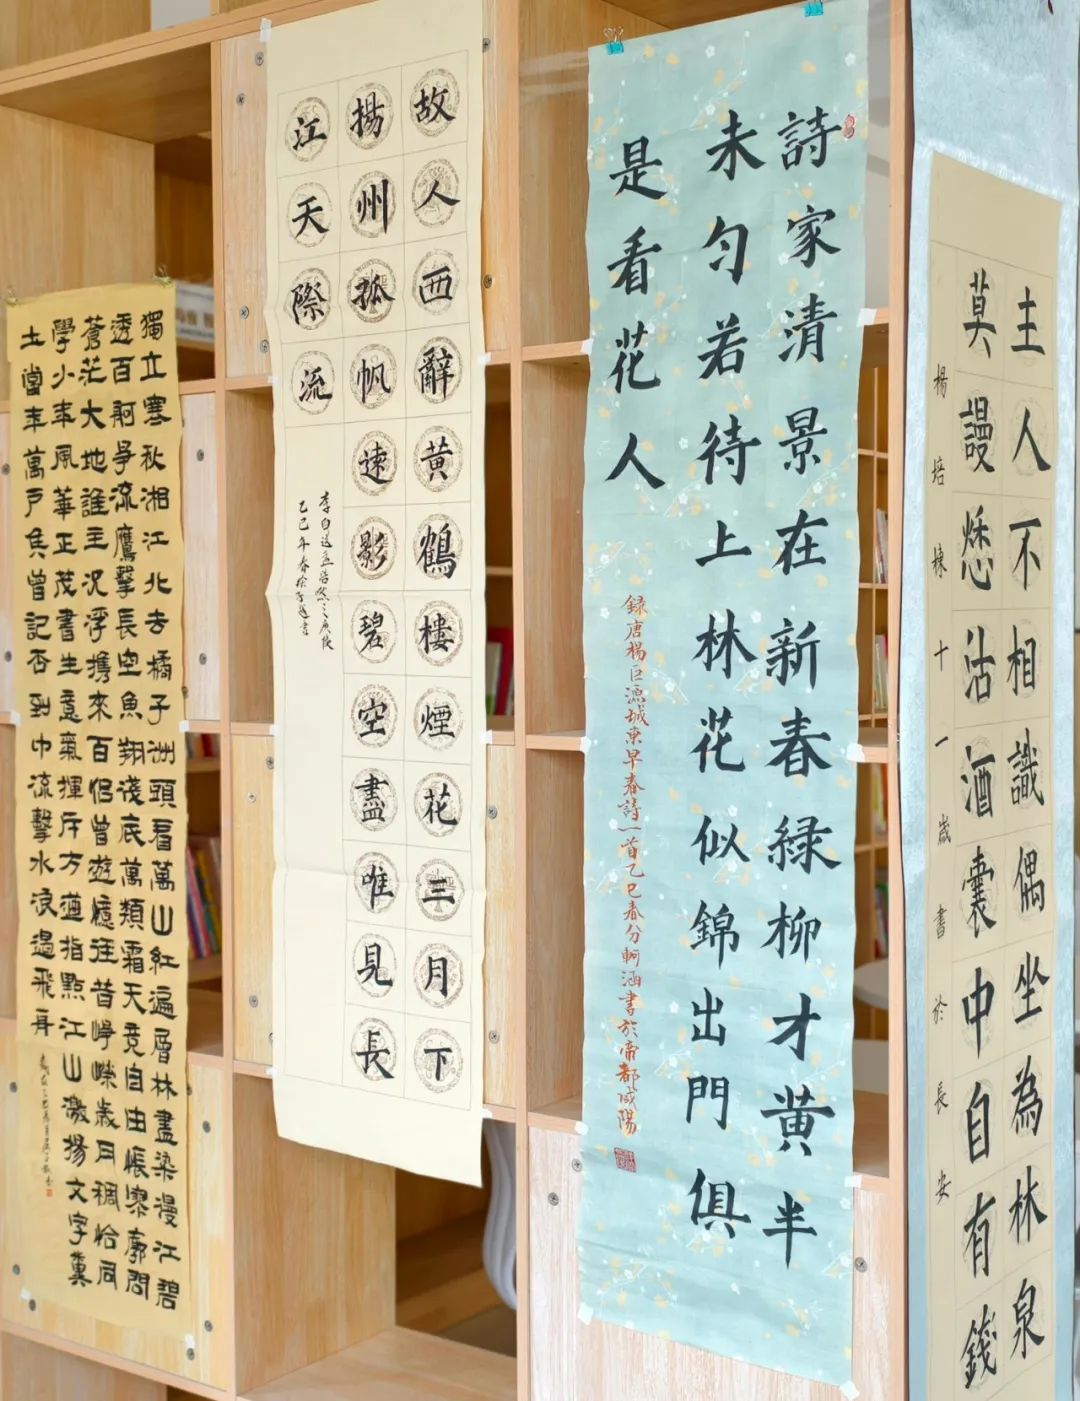 主人不相識偶坐為林泉
莫謾愁沽酒囊中自有錢
楊培棟十一歲書於長安
詩家清景在新春綠柳才黃半
未勻若待上林花似錦出門俱
是看花人
錄唐楊巨源城東早春詩一首乙巳春分軻涵書於帝都咸陽
故人西辭黃鶴樓煙花三月下
揚州孤帆遠影碧空盡唯見長
江天際流
李白送孟浩然之廣陵
乙巳年春徐書
獨立寒秋湘江北去橘子洲頭看萬山紅遍層林盡染漫江碧
透百舸爭流鷹擊長空魚翔淺底萬類霜天竞自由悵寥廓問
蒼茫大地誰主沉浮攜來百侶曾遊憶往昔崢嶸歲月稠恰同
學少年風華正茂書生意氣揮斥方遒指點江山激揚文字糞
土當年萬戶侯曾記否到中流擊水浪遏飛舟